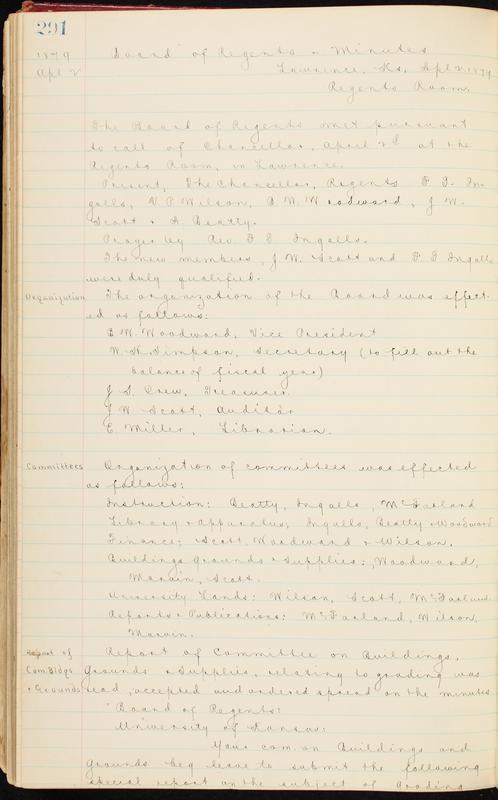 291
1879 Board of Regents - Minutes
Apl 2 Lawrence, Ks, Apl 2 1879
Regents Room,
The Board of Regents met pursuant
to call of Chancellor, April 2d at the
Regents Room, in Lawrence.
Present, The Chancellor, Regents F. T. In-
galls, V. P. Wilson, B. W. Woodward, J W.
Scott & A. Beatty.
Prayer by Rev. F T. Ingalls.
The new members, J. W. Scott and F. T Ingalls
were duly qualified.
Organization The organization of the Board was effect-
ed as follows:
B W. Woodward, Vice President
W. H. Simpson, Secretary (to fill out the
balance of fiscal year)
J. S. Crew, Treasurer.
J W. Scott, Auditor
E. Miller, Librarian.
Committees Organization of committees was effected
as follows:
Instruction: Beatty, Ingalls, McFarland
Library & apparatus; Ingalls, Beatty & Woodward
Finance; Scott, Woodward & Wilson.
Buildings Grounds & Supplies:, Woodward,
Marvin, Scott.
University Lands: Wilson, Scott, McFarland
Reports & Publications: McFarland, Wilson,
Marvin.
Report of Report of Committee on Buildings,
Com. Bldgs Grounds & Supplies, relating to grading was
& Grounds read, accepted and ordered spread on the minutes
"Board of Regents:
University of Kansas:
Your com. on Buildings and
Grounds beg leave to submit the following
special report on the subject of grading